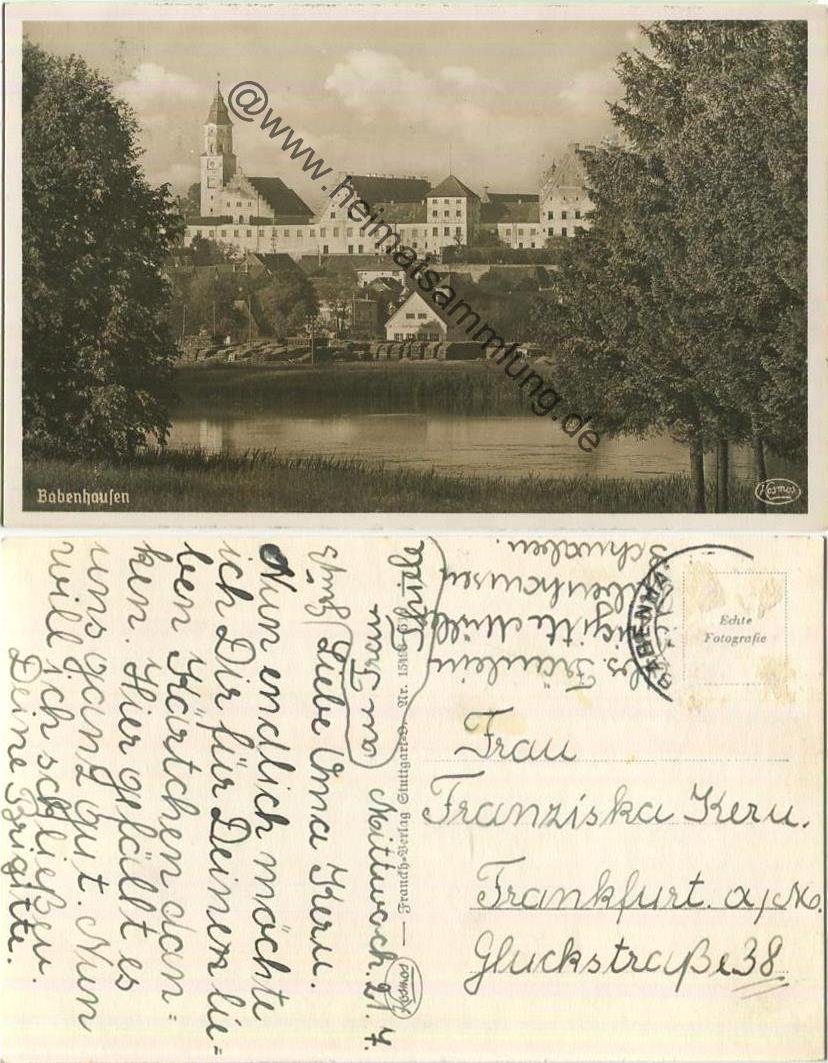 @www.heimatsammlung.de
Babenhausen
Kosmos
Mittwoch. 21. 7.
Liebe Oma Kern.
Nun endlich möchte
ich Dir für Deinen lie=
ben Kärtchen dan=
ken. Hier gefällt es
uns ganz gut. Nun
will ich schließen.
Deine Brigitte.
Frau
Thiele
Kosmos
— Franckh-Verlag Stuttgart-O. Nr.
Fräulein
Brigitte
Babenhausen
Schwaben.
BABENHA
Echte
Fotografie
Frau
Franziska Kern.
Frankfurt. a/M.
Gluckstraße 38